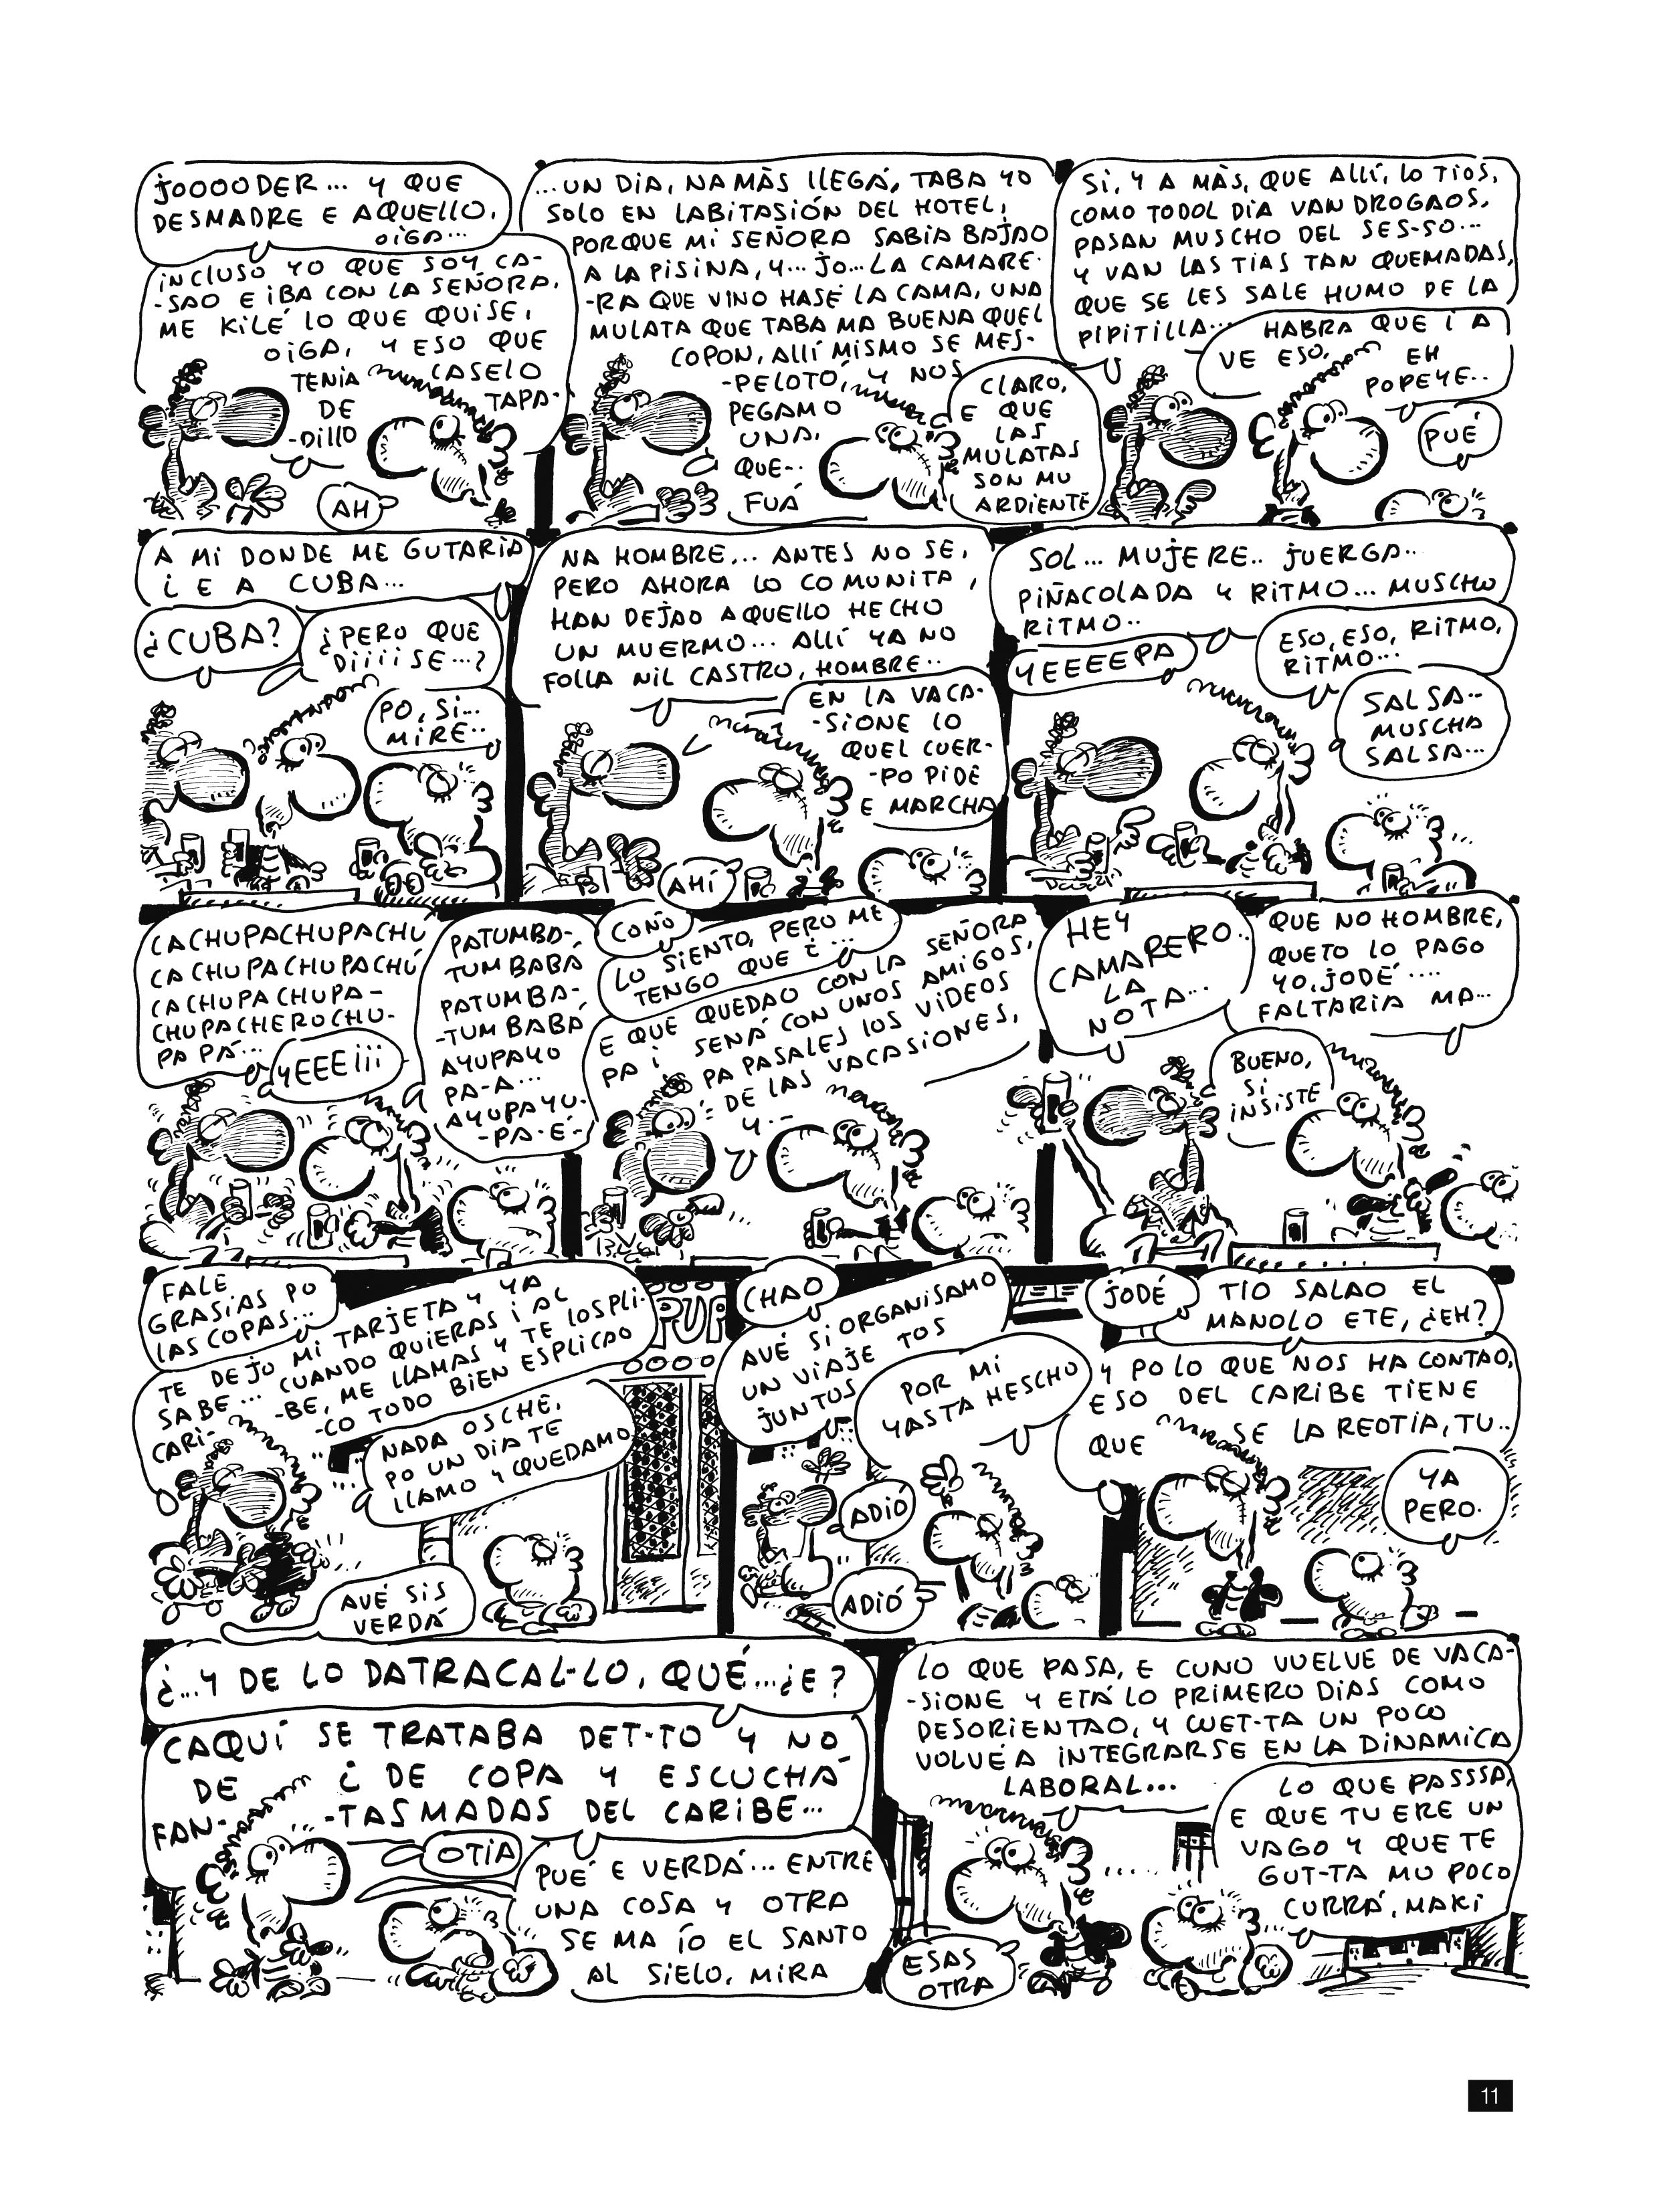 JOOOODER... Y QUE
DESMADRE E AQUELLO,
OIGA...
INCLUSO YO QUE SOY CA-
-SAO E IBA CON LA SEÑORA,
ME KILÉ LO QUE QUISE,
OIGA, Y ESO QUE
TENIA CASELO
DE TAPA-
-DILLO
AH
...UN DIA, NA MÀS LLEGÁ, TABA YO
SOLO EN LABITASIÓN DEL HOTEL,
PORQUE MI SEÑORA SABIA BAJAO
A LA PISINA, Y... JO... LA CAMARE-
-RA QUE VINO HASÉ LA CAMA, UNA
MULATA QUE TABA MA BUENA QUEL
COPON, ALLÍ MISMO SE MES-
-PELOTÓ, Y NOS
PEGAMO
UNA,
QUE..
FUÁ
CLARO,
E QUE
LAS
MULATAS
SON MU
ARDIENTE
SI, Y A MÀS, QUE ALLÍ, LO TIOS,
COMO TODOL DIA VAN DROGAOS,
PASAN MUSCHO DEL SES-SO...
Y VAN LAS TIAS TAN QUEMADAS,
QUE SE LES SALE HUMO DE LA
PIPITILLA...
HABRA QUE I A
VE ESO,
EH
POPEYE..
PUÉ
A MI DONDE ME GUTARIA
¿ E A CUBA...
¿CUBA?
¿PERO QUE
DIIIISE...?
PO, SI...
MIRE..
NA HOMBRE... ANTES NO SE,
PERO AHORA LO COMUNITA,
HAN DEJAO AQUELLO HECHO
UN MUERMO... ALLÍ YA NO
FOLLA NIL CASTRO, HOMBRE..
EN LA VACA-
-SIONE LO
QUEL CUER-
-PO PIDE
E MARCHA
AHÍ
SOL... MUJERE.. JUERGA..
PIÑACOLADA Y RITMO... MUSCHO
RITMO..
YEEEEPA
ESO, ESO, RITMO,
RITMO...
SALSA..
MUSCHA
SALSA...
CACHUPACHUPACHÚ
CACHUPACHUPACHÚ
CACHUPACHUPA-
CHUPACHEROCHU-
PA PÁ...
YEEE¡¡¡
PATUMBA-
TUMBABÁ
PATUMBA-
-TUMBABÁ
AYUPAYO
PA-A...
AYUPAYU-
-PA-É-
COÑO
LO SIENTO, PERO ME
TENGO QUE ¿...
E QUE QUEDAO CON LA SEÑORA
PA Í SENÁ CON UNOS AMIGOS,
PA PASALES LOS VIDEOS
DE LAS VACASIONES,
Y...
HEY
CAMARERO..
LA
NOTA...
QUE NO HOMBRE,
QUETO LO PAGO
YO, JODÉ....
FALTARIA MA...
BUENO,
SI
INSISTE
FALE
GRASIAS PO
LAS COPAS...
TE DEJO MI TARJETA Y YA
SABE... CUANDO QUIERAS I AL
CARI-
-BE, ME LLAMAS Y TE LOSPLI-
-CO TODO BIEN ESPLICAO
NADA OSCHE,
PO UN DIA TE
LLAMO Y QUEDAMO
AVÉ SIS
VERDÁ
PUP
CHAO
AVÉ SI ORGANISAMO
UN VIAJE TOS
JUNTOS
POR MI
YASTA HESCHO
ADIÓ
ADIÓ
JODÉ
TIO SALAO EL
MANOLO ETE, ¿EH?
Y PO LO QUE NOS HA CONTAO,
ESO DEL CARIBE TIENE
QUE SE LA REOTIA, TU..
YA
PERO.
¿...Y DE LO DATRACAL-LO, QUÉ...¿E?
CAQUÍ SE TRATABA DET-TO Y NO
DE ¿ DE COPA Y ESCUCHÁ
FAN-
-TASMADAS DEL CARIBE...
OTIA
PUÉ E VERDÁ... ENTRE
UNA COSA Y OTRA
SE MA ÍO EL SANTO
AL SIELO, MIRA
LO QUE PASA, E CUNO VUELVE DE VACA-
-SIONE Y ETÁ LO PRIMERO DIAS COMO
DESORIENTAO, Y CUET-TA UN POCO
VOLVÉ A INTEGRARSE EN LA DINAMICA
LABORAL...
LO QUE PASSSA,
E QUE TU ERE UN
VAGO Y QUE TE
GUT-TA MU POCO
CURRÁ, MAKI
ESAS
OTRA
11